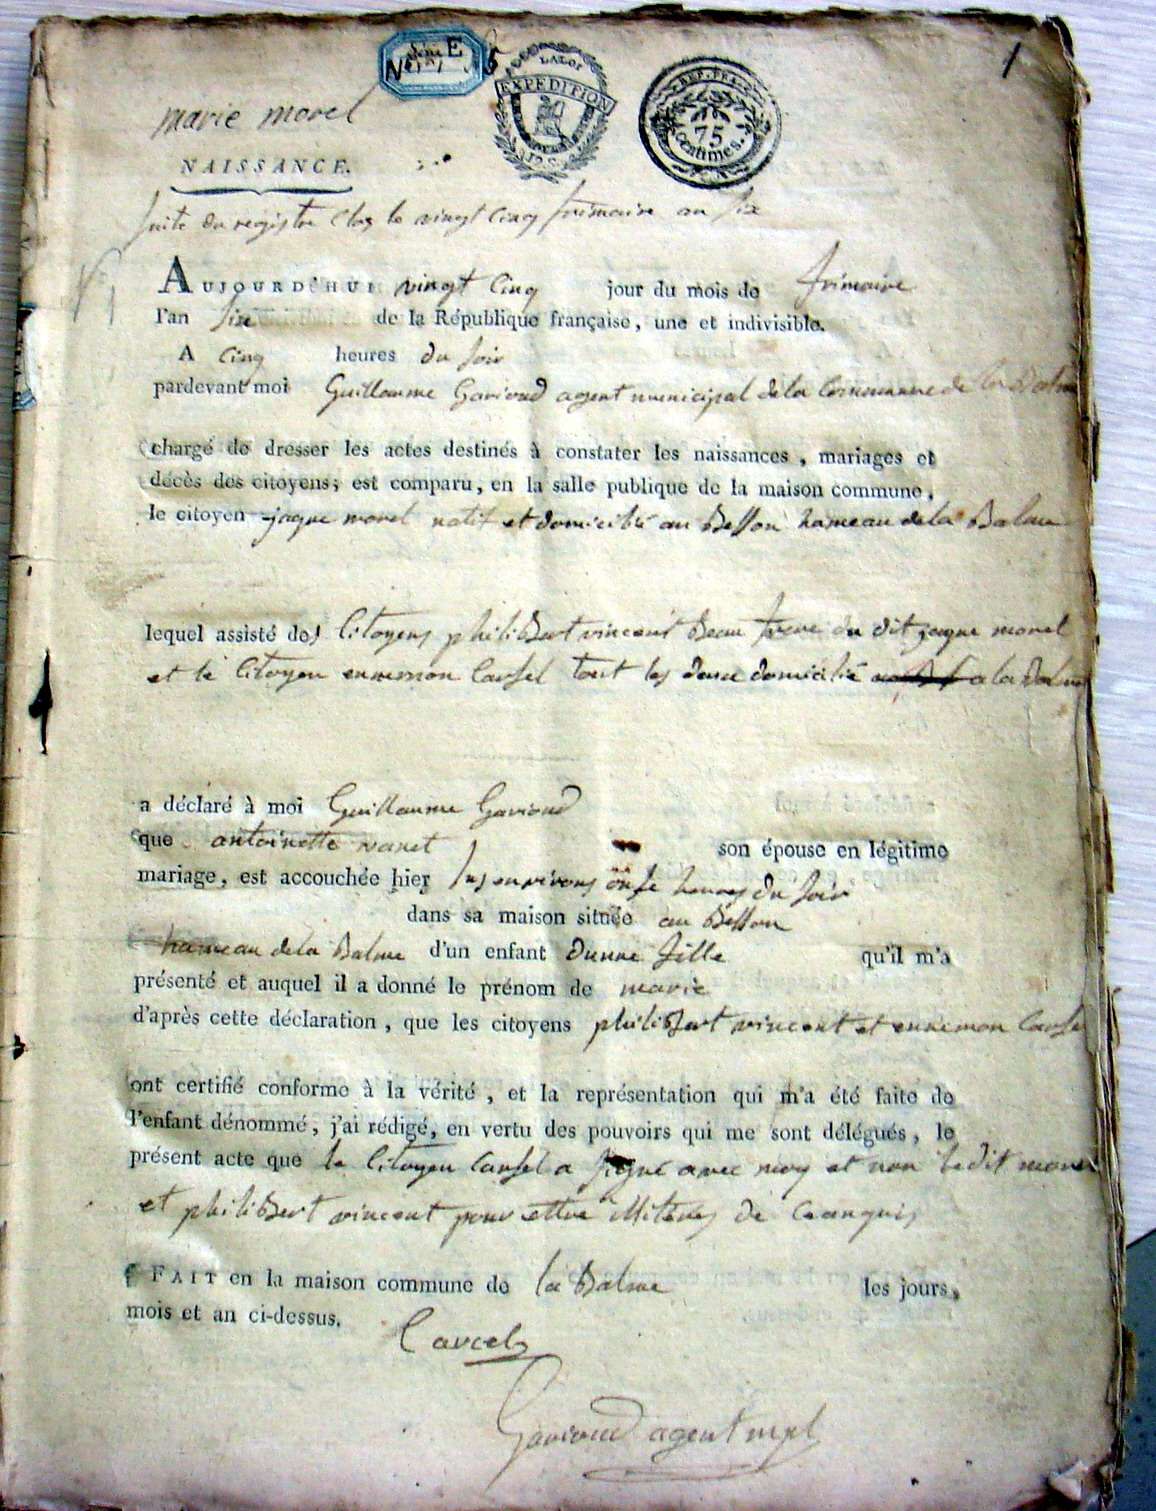 Série E
1
LA LOI
EXPÉDITION
REP. FRA.
75
centimes.
marie morel
NAISSANCE.
suite du registre clos le vingt cinq frimaire an six
AUJOURD'HUI vingt cinq jour du mois de frimaire
l'an six de la République française, une et indivisible.
A cinq heures du soir
pardevant moi Guillaume Gavioud agent municipal de la commune de la Balme
chargé de dresser les actes destinés à constater les naissances, mariages et
décès des citoyens; est comparu, en la salle publique de la maison commune,
le citoyen jaque morel natif et domicilié au Besson hameau de la Balme
lequel assisté des citoyens philibert vincent Beau frere du dit jaque morel
et le citoyen ennemon Carsel tout les deux domicilié a la Balme
a déclaré à moi Guillaume Gavioud
que antoinette son épouse en légitime
mariage, est accouchée hier sus environs onse heures du soir
dans sa maison située au Besson
hameau de la Balme d'un enfant dunne fille qu'il m'a
présenté et auquel il a donné le prénom de marie
d'après cette déclaration, que les citoyens philibert vincent et ennemon Carsel
ont certifié conforme à la vérité, et la représentation qui m'a été faite de
l'enfant dénommé, j'ai rédigé, en vertu des pouvoirs qui me sont délégués, le
présent acte que le citoyen Carsel a signé avec moy et non le dit morel
et philibert vincent pour ettre de
FAIT en la maison commune de la Balme les jours,
mois et an ci-dessus.
Carcel
Gavioud agent mpl